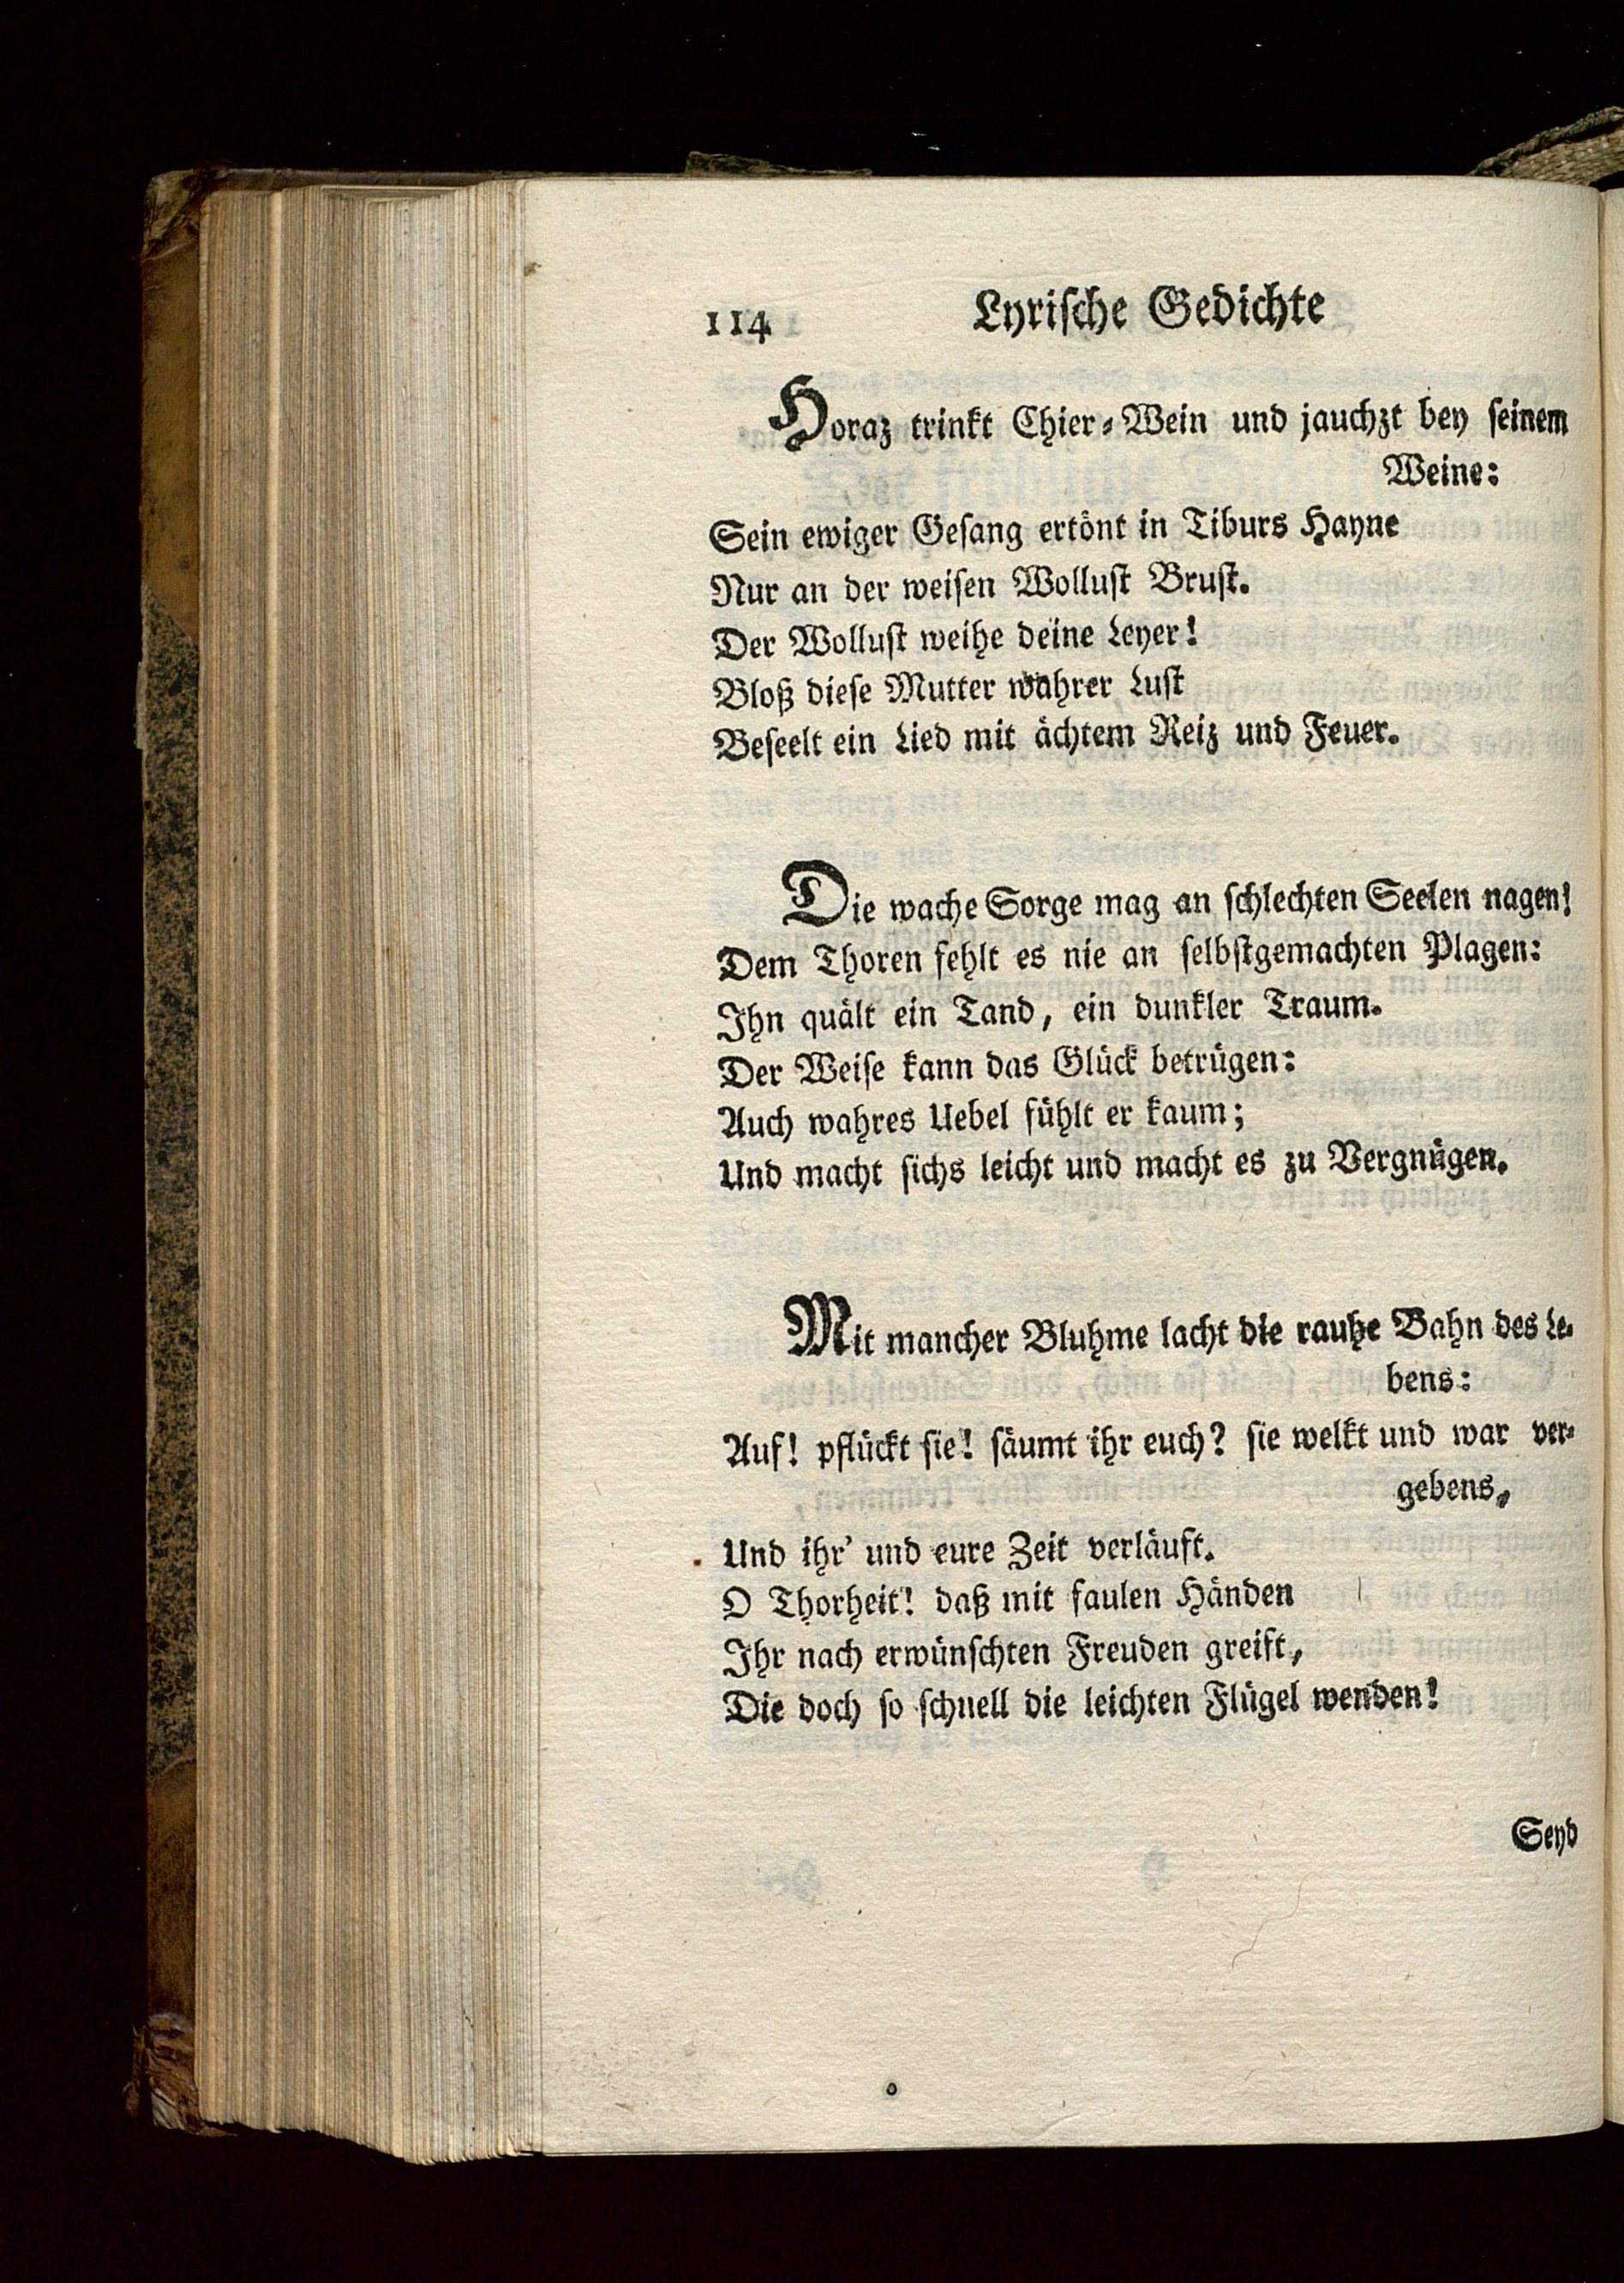 114 Lyrische Gedichte
Horaz trinkt Chier-Wein und jauchzt bey seinem
Weine:
Sein ewiger Gesang ertönt in Tiburs Hayne
Nur an der weisen Wollust Brust.
Der Wollust weihe deine Leyer!
Bloß diese Mutter wahrer Lust
Beseelt ein Lied mit ächtem Reiz und Feuer.
Die wache Sorge mag an schlechten Seelen nagen!
Dem Thoren fehlt es nie an selbstgemachten Plagen:
Ihn quält ein Tand, ein dunkler Traum.
Der Weise kann das Glück betrügen:
Auch wahres Uebel fühlt er kaum;
Und macht sichs leicht und macht es zu Vergnügen.
Mit mancher Bluhme lacht die rauhe Bahn des Le-
bens:
Auf! pflückt sie! säumt ihr euch? sie welkt und war ver-
gebens,
Und ihr' und eure Zeit verläuft.
O Thorheit! daß mit faulen Händen
Ihr nach erwünschten Freuden greift,
Die doch so schnell die leichten Flügel wenden!
Seyd